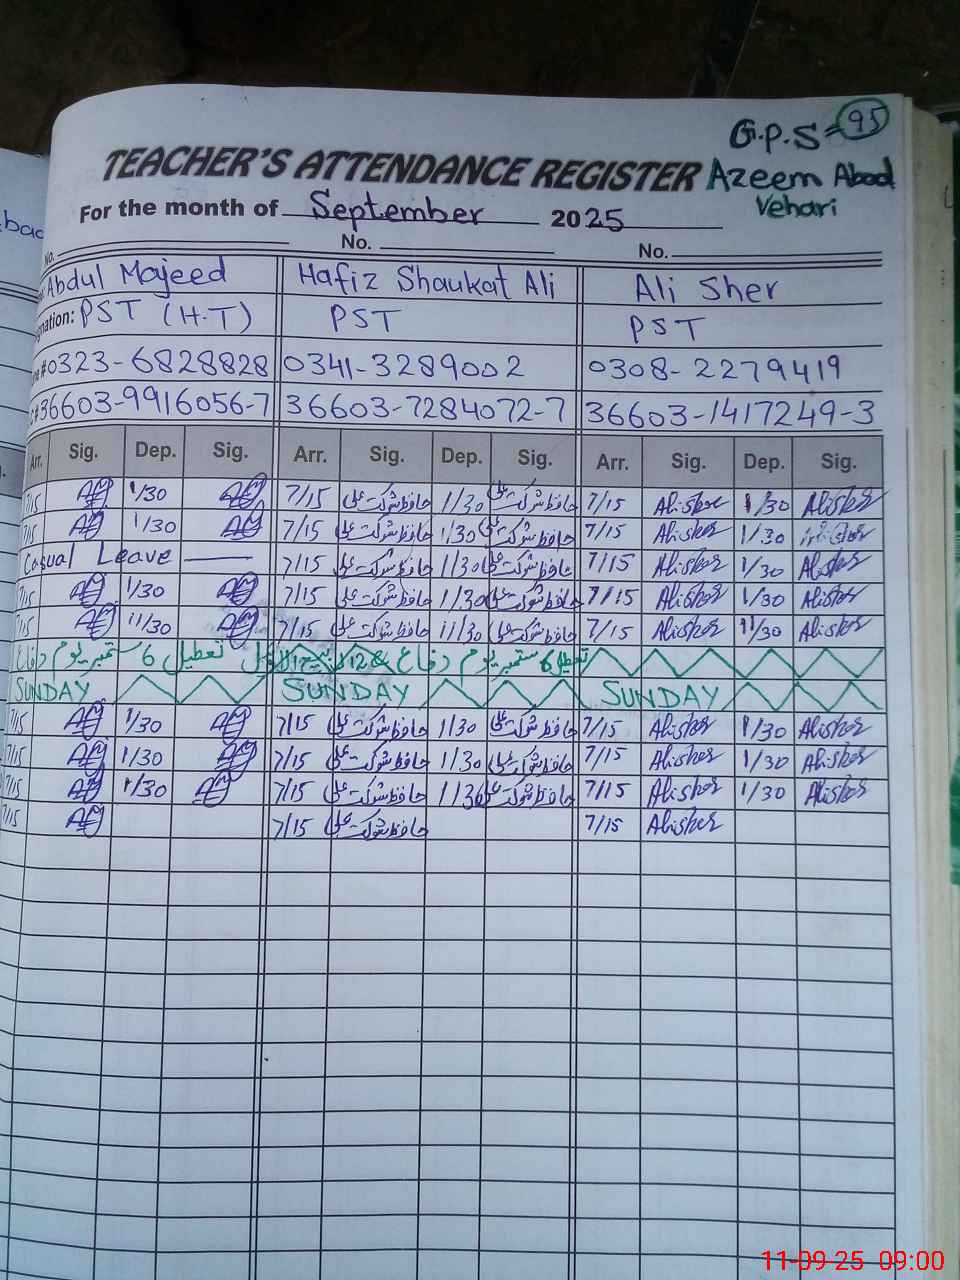 G.P.S = 95
TEACHER'S ATTENDANCE REGISTER Azeem Abad
Vehari
For the month of September 2025
No. No. No.
Abdul Majeed Hafiz Shaukat Ali Ali Sher
nation: PST (H.T) PST PST
0323-6828828 0341-3289002 0308-2279419
36603-9916056-7 36603-7284072-7 36603-1417249-3
Arr. Sig. Dep. Sig. Arr. Sig. Dep. Sig. Arr. Sig. Dep. Sig.
7/15 1/30 7/15 حافظ شوکت علی 1/30 حافظ شوکت علی 7/15 Alisher 1/30 Alisher
7/15 1/30 7/15 حافظ شوکت علی 1/30 حافظ شوکت علی 7/15 Alisher 1/30 Alisher
Casual Leave 7/15 حافظ شوکت علی 1/30 حافظ شوکت علی 7/15 Alisher 1/30 Alisher
7/15 1/30 7/15 حافظ شوکت علی 1/30 حافظ شوکت علی 7/15 Alisher 1/30 Alisher
7/15 11/30 7/15 حافظ شوکت علی 11/30 حافظ شوکت علی 7/15 Alisher 11/30 Alisher
تعطیل 6 ستمبر یوم دفاع & 12 ربیع الاول تعطیل 6 ستمبر یوم دفاع
SUNDAY SUNDAY SUNDAY
7/15 1/30 7/15 حافظ شوکت علی 1/30 حافظ شوکت علی 7/15 Alisher 1/30 Alisher
7/15 1/30 7/15 حافظ شوکت علی 1/30 حافظ شوکت علی 7/15 Alisher 1/30 Alisher
7/15 1/30 7/15 حافظ شوکت علی 1/30 حافظ شوکت علی 7/15 Alisher 1/30 Alisher
7/15 7/15 حافظ شوکت علی 7/15 Alisher
11-09-25 09:00